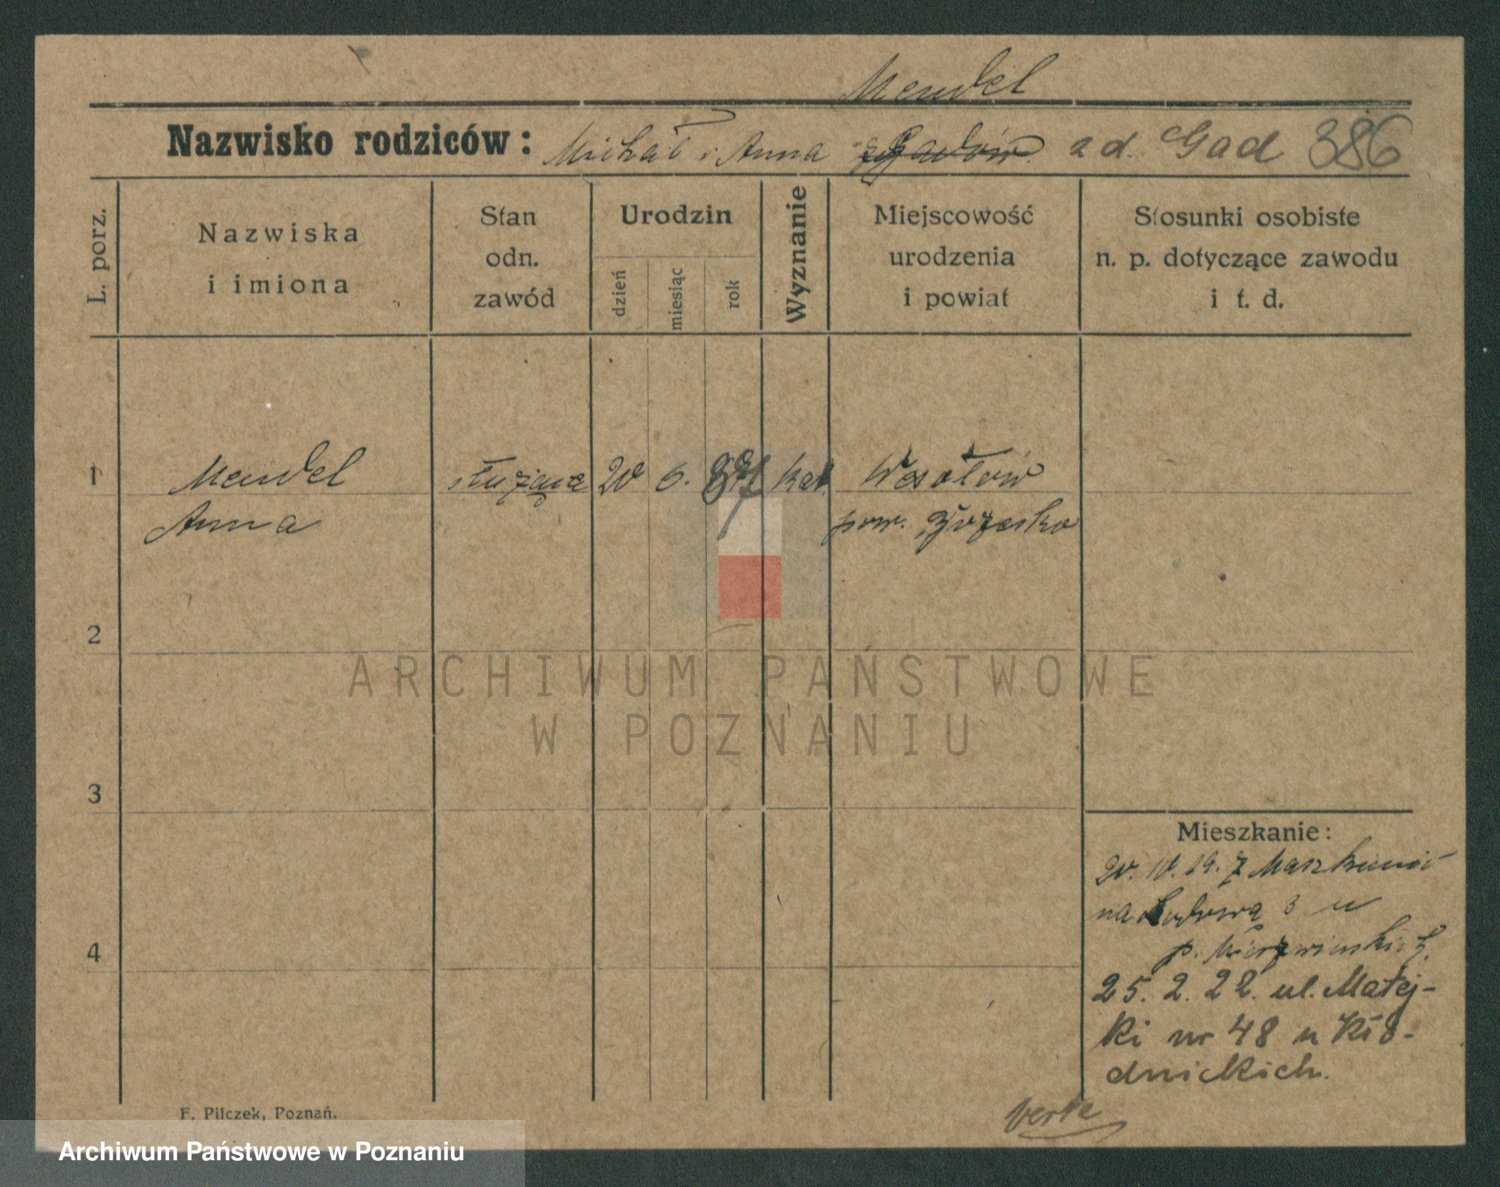 Mendel
Nazwisko rodziców: Michał i Anna zd. Gad 386
L. porz.
Nazwiska
i imiona
Stan
odn.
zawód
Urodzin
dzień
miesiąc
rok
Wyznanie
Miejscowość
urodzenia
i powiat
Stosunki osobiste
n. p. dotyczące zawodu
i t. d.
1 Mendel służąca 20 6. kat.
Anna pow.
2
3
4
Mieszkanie:
20. 10. 19. z
na 3 u
p.
25. 2. 22. ul. Matej-
ki nr 48 u Kło-
dnickich.
verte
F. Pilczek, Poznań.
ARCHIWUM PAŃSTWOWE
W POZNANIU
Archiwum Państwowe w Poznaniu